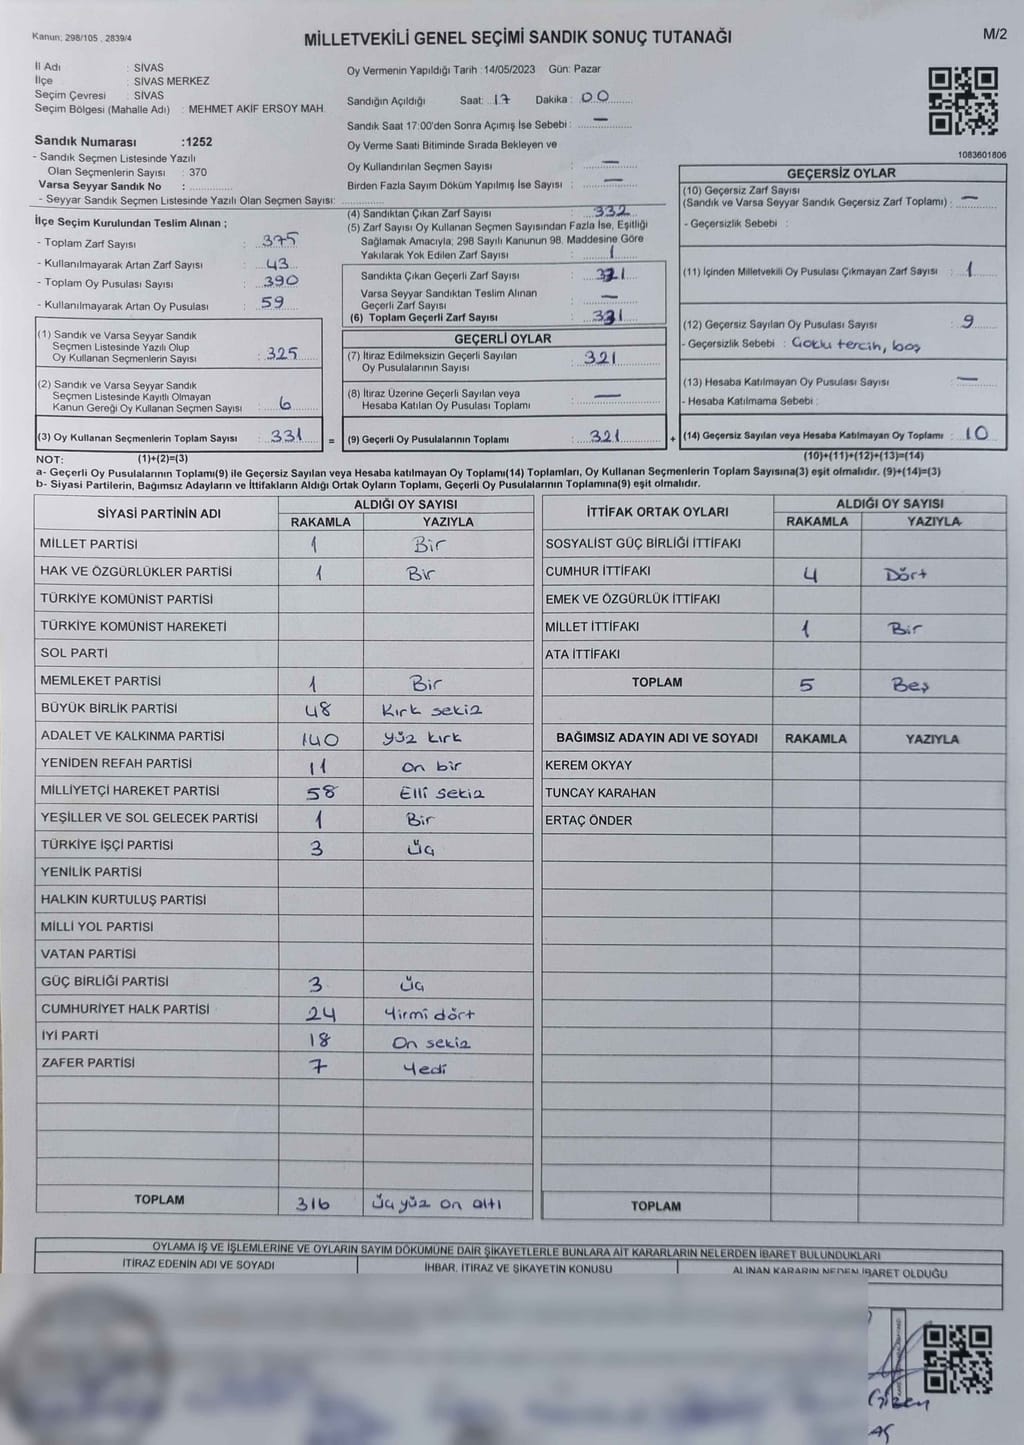 Kanun: 298/105 , 2839/4
MİLLETVEKİLİ GENEL SEÇİMİ SANDIK SONUÇ TUTANAĞI
M/2
İl Adı : SİVAS
İlçe : SİVAS MERKEZ
Seçim Çevresi : SİVAS
Seçim Bölgesi (Mahalle Adı) : MEHMET AKİF ERSOY MAH.
Sandık Numarası :1252
- Sandık Seçmen Listesinde Yazılı
Olan Seçmenlerin Sayısı : 370
Varsa Seyyar Sandık No :
- Seyyar Sandık Seçmen Listesinde Yazılı Olan Seçmen Sayısı:
İlçe Seçim Kurulundan Teslim Alınan ;
- Toplam Zarf Sayısı : 375
- Kullanılmayarak Artan Zarf Sayısı : 43
- Toplam Oy Pusulası Sayısı : 390
- Kullanılmayarak Artan Oy Pusulası : 59
(1) Sandık ve Varsa Seyyar Sandık
Seçmen Listesinde Yazılı Olup
Oy Kullanan Seçmenlerin Sayısı : 325
(2) Sandık ve Varsa Seyyar Sandık
Seçmen Listesinde Kayıtlı Olmayan
Kanun Gereği Oy Kullanan Seçmen Sayısı : 6
(3) Oy Kullanan Seçmenlerin Toplam Sayısı : 331 =
Oy Vermenin Yapıldığı Tarih :14/05/2023 Gün: Pazar
Sandığın Açıldığı Saat: 17 Dakika : 00
Sandık Saat 17:00'den Sonra Açımış İse Sebebi : —
Oy Verme Saati Bitiminde Sırada Bekleyen ve
Oy Kullandırılan Seçmen Sayısı : —
Birden Fazla Sayım Döküm Yapılmış İse Sayısı : —
(4) Sandıktan Çıkan Zarf Sayısı : 332
(5) Zarf Sayısı Oy Kullanan Seçmen Sayısından Fazla İse, Eşitliği
Sağlamak Amacıyla; 298 Sayılı Kanunun 98. Maddesine Göre
Yakılarak Yok Edilen Zarf Sayısı : 1
Sandıkta Çıkan Geçerli Zarf Sayısı :
Varsa Seyyar Sandıktan Teslim Alınan
Geçerli Zarf Sayısı : —
(6) Toplam Geçerli Zarf Sayısı : 331
GEÇERLİ OYLAR
(7) İtiraz Edilmeksizin Geçerli Sayılan
Oy Pusulalarının Sayısı : 321
(8) İtiraz Üzerine Geçerli Sayılan veya
Hesaba Katılan Oy Pusulası Toplamı : —
(9) Geçerli Oy Pusulalarının Toplamı : 321 +
1083601806
GEÇERSİZ OYLAR
(10) Geçersiz Zarf Sayısı
(Sandık ve Varsa Seyyar Sandık Geçersiz Zarf Toplamı) : —
- Geçersizlik Sebebi :
(11) İçinden Milletvekili Oy Pusulası Çıkmayan Zarf Sayısı : 1
(12) Geçersiz Sayılan Oy Pusulası Sayısı : 9
- Geçersizlik Sebebi : Çoklu tercih, boş
(13) Hesaba Katılmayan Oy Pusulası Sayısı : —
- Hesaba Katılmama Sebebi :
(14) Geçersiz Sayılan veya Hesaba Katılmayan Oy Toplamı : 10
NOT: (1)+(2)=(3) (10)+(11)+(12)+(13)=(14)
a- Geçerli Oy Pusulalarının Toplamı(9) ile Geçersiz Sayılan veya Hesaba katılmayan Oy Toplamı(14) Toplamları, Oy Kullanan Seçmenlerin Toplam Sayısına(3) eşit olmalıdır. (9)+(14)=(3)
b- Siyasi Partilerin, Bağımsız Adayların ve İttifakların Aldığı Ortak Oyların Toplamı, Geçerli Oy Pusulalarının Toplamına(9) eşit olmalıdır.
SİYASİ PARTİNİN ADI ALDIĞI OY SAYISI
RAKAMLA YAZIYLA
MİLLET PARTİSİ 1 Bir
HAK VE ÖZGÜRLÜKLER PARTİSİ 1 Bir
TÜRKİYE KOMÜNİST PARTİSİ
TÜRKİYE KOMÜNİST HAREKETİ
SOL PARTİ
MEMLEKET PARTİSİ 1 Bir
BÜYÜK BİRLİK PARTİSİ 48 Kırk sekiz
ADALET VE KALKINMA PARTİSİ 140 yüz kırk
YENİDEN REFAH PARTİSİ 11 on bir
MİLLİYETÇİ HAREKET PARTİSİ 58 Elli sekiz
YEŞİLLER VE SOL GELECEK PARTİSİ 1 Bir
TÜRKİYE İŞÇİ PARTİSİ 3 üç
YENİLİK PARTİSİ
HALKIN KURTULUŞ PARTİSİ
MİLLİ YOL PARTİSİ
VATAN PARTİSİ
GÜÇ BİRLİĞİ PARTİSİ 3 üç
CUMHURİYET HALK PARTİSİ 24 Yirmi dört
İYİ PARTİ 18 On sekiz
ZAFER PARTİSİ 7 Yedi
TOPLAM 316 üç yüz on altı
İTTİFAK ORTAK OYLARI ALDIĞI OY SAYISI
RAKAMLA YAZIYLA
SOSYALİST GÜÇ BİRLİĞİ İTTİFAKI
CUMHUR İTTİFAKI 4 Dört
EMEK VE ÖZGÜRLÜK İTTİFAKI
MİLLET İTTİFAKI 1 Bir
ATA İTTİFAKI
TOPLAM 5 Beş
BAĞIMSIZ ADAYIN ADI VE SOYADI RAKAMLA YAZIYLA
KEREM OKYAY
TUNCAY KARAHAN
ERTAÇ ÖNDER
TOPLAM
OYLAMA İŞ VE İŞLEMLERİNE VE OYLARIN SAYIM DÖKÜMÜNE DAİR ŞİKAYETLERLE BUNLARA AİT KARARLARIN NELERDEN İBARET BULUNDUKLARI
İTİRAZ EDENİN ADI VE SOYADI İHBAR, İTİRAZ VE ŞİKAYETİN KONUSU ALINAN KARARIN NEDEN İBARET OLDUĞU